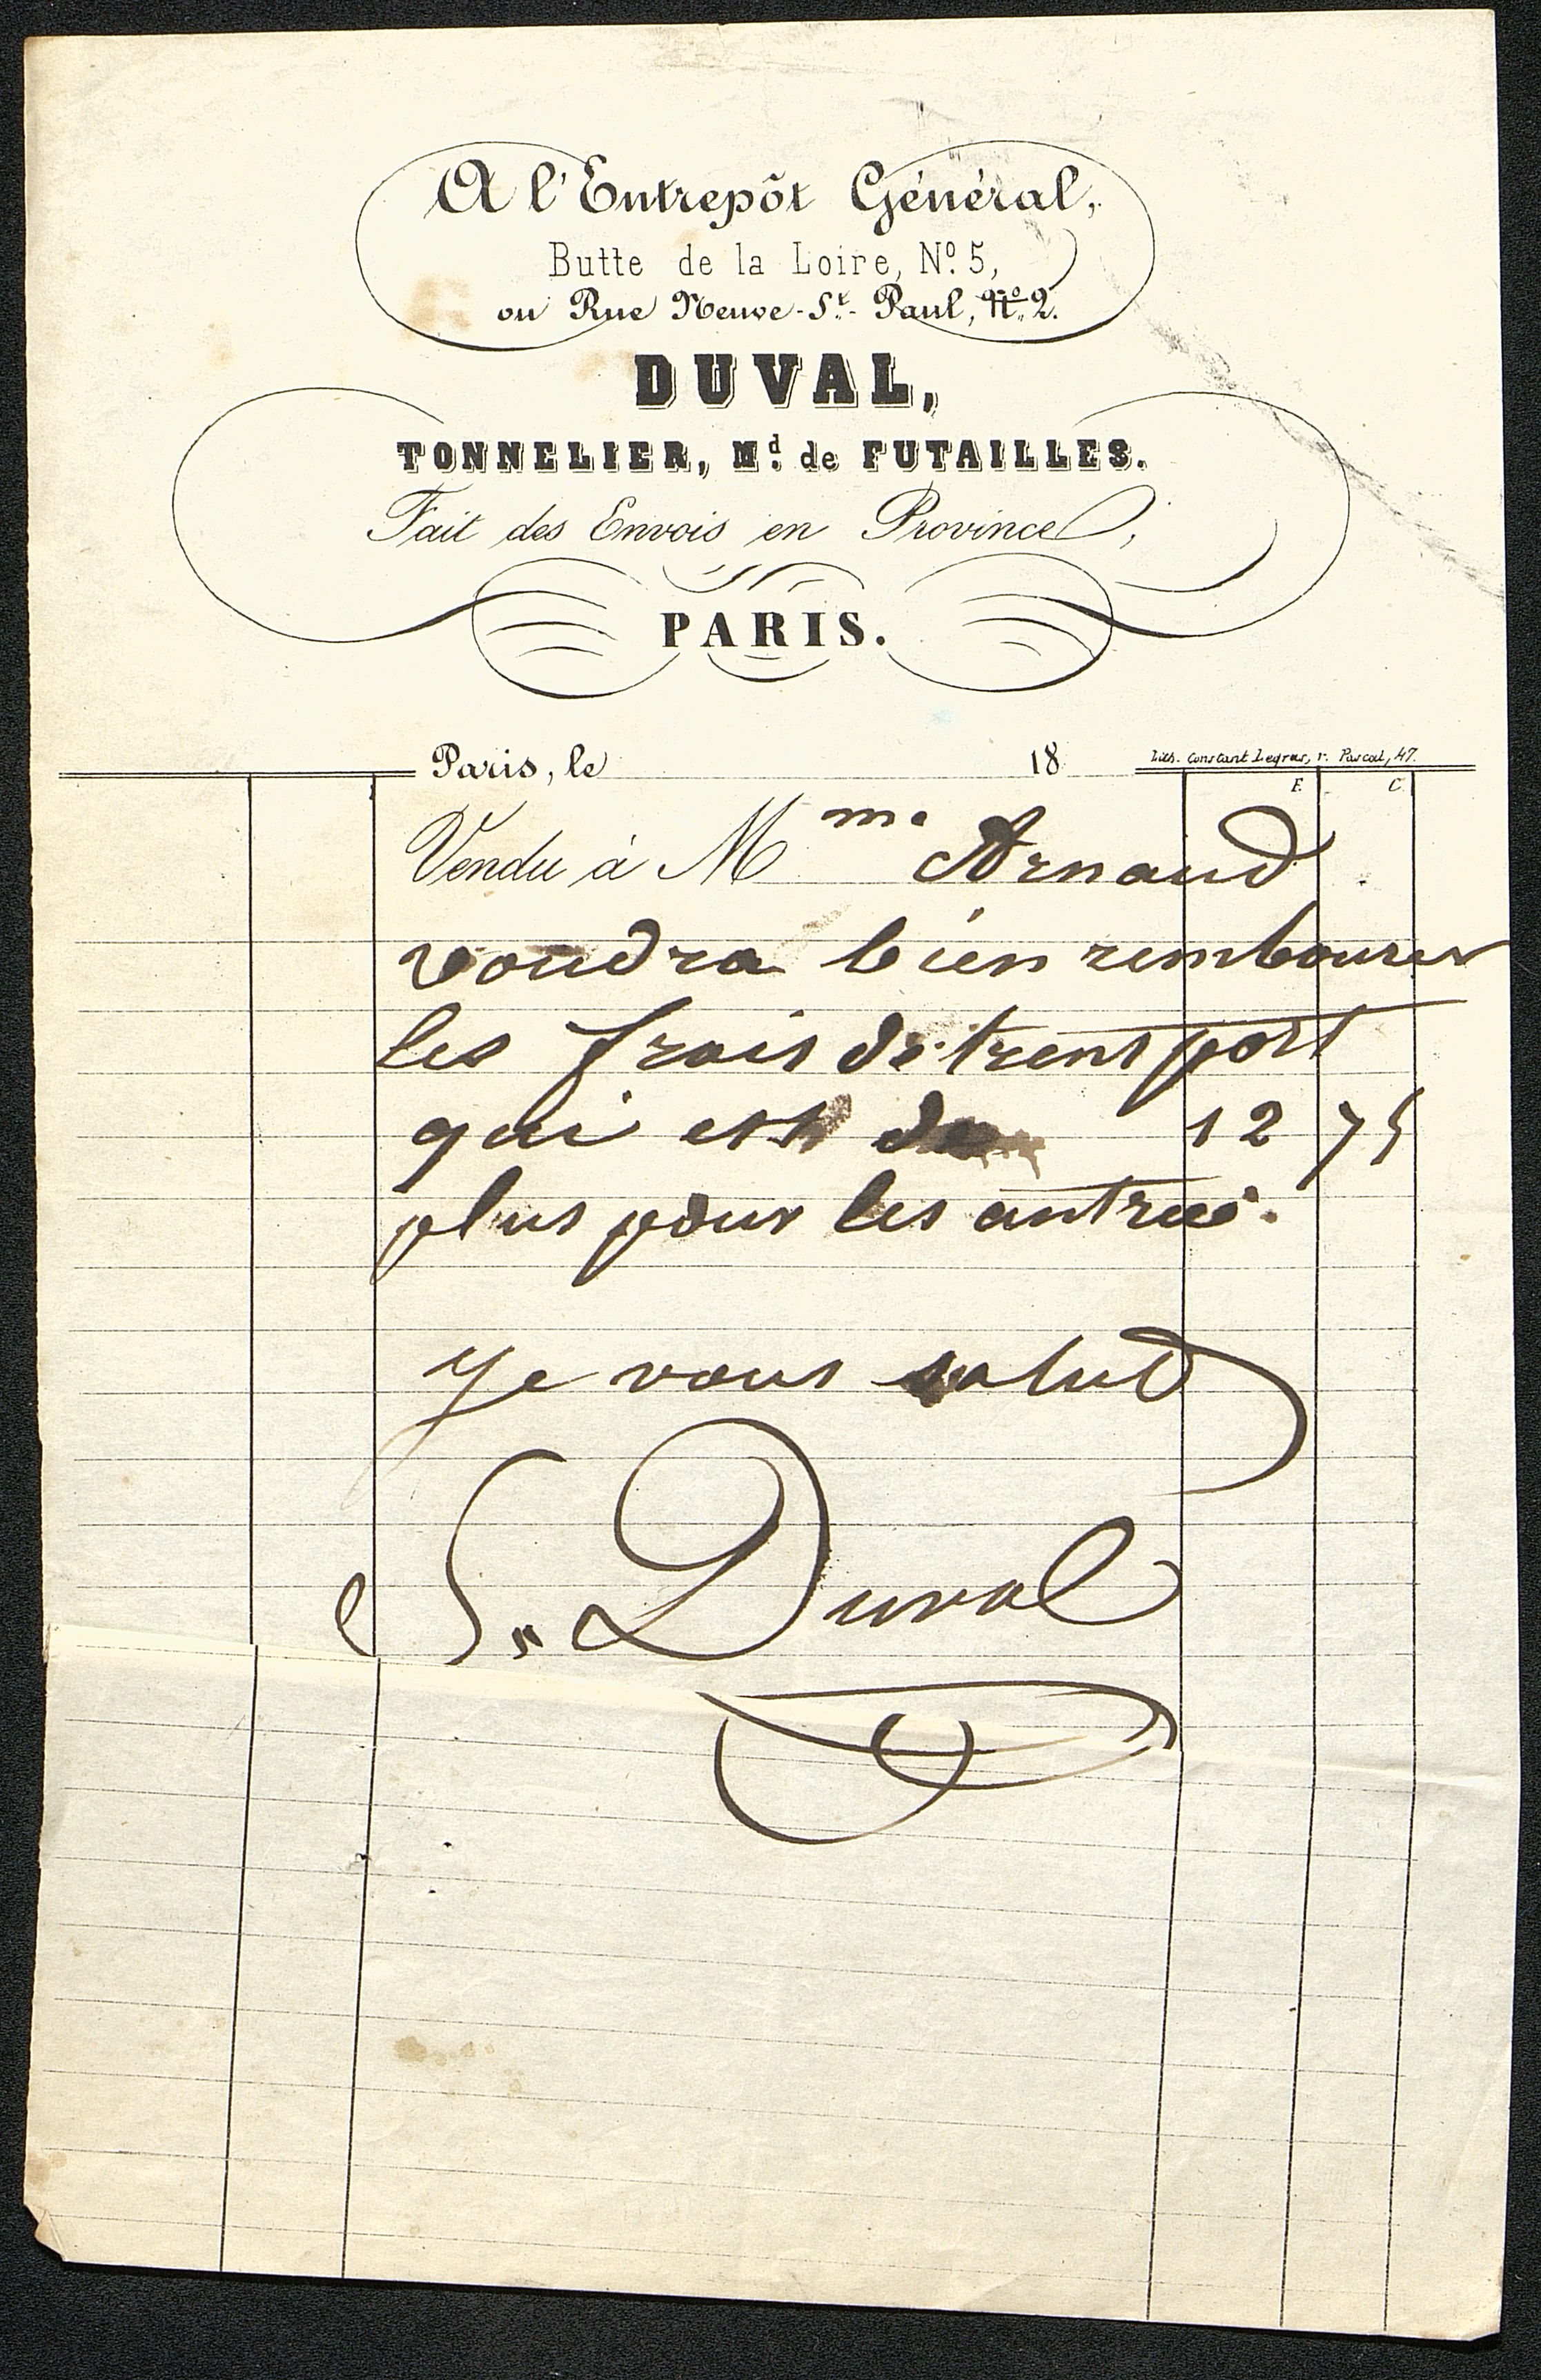 A l'Entrepôt Général,
Butte de la Loire, N.º 5,
ou Rue Neuve-S.t- Paul, N.º 2.
DUVAL,
TONNELIER, M.d de FUTAILLES.
Fait des Envois en Province,
PARIS.
Paris, le 18
Lith. Constant Legras, r. Pascal, 47.
F. C.
Vendu à M me Arnaud
voudra bien rembourser
les frais de transport
qui est de 12 75
plus pour les
Je vous salud
Duval